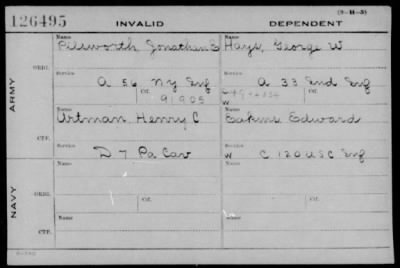 (9-11-3)
126495 INVALID DEPENDENT
Name Name
Pilsworth Jonathan E Hays, George W
ORIG.
Service Service
A 56 N Y Inf A 33 Ind Inf
Ctf. Ctf.
91905
ARMY
Name Name
Artman Henry C Eakins Edward
CTF.
Service Service
D 7 Pa Cav W C 120 U S C Inf
Name Name
ORIG.
Service Service
Ctf. Ctf.
NAVY
Name Name
CTF.
Service Service